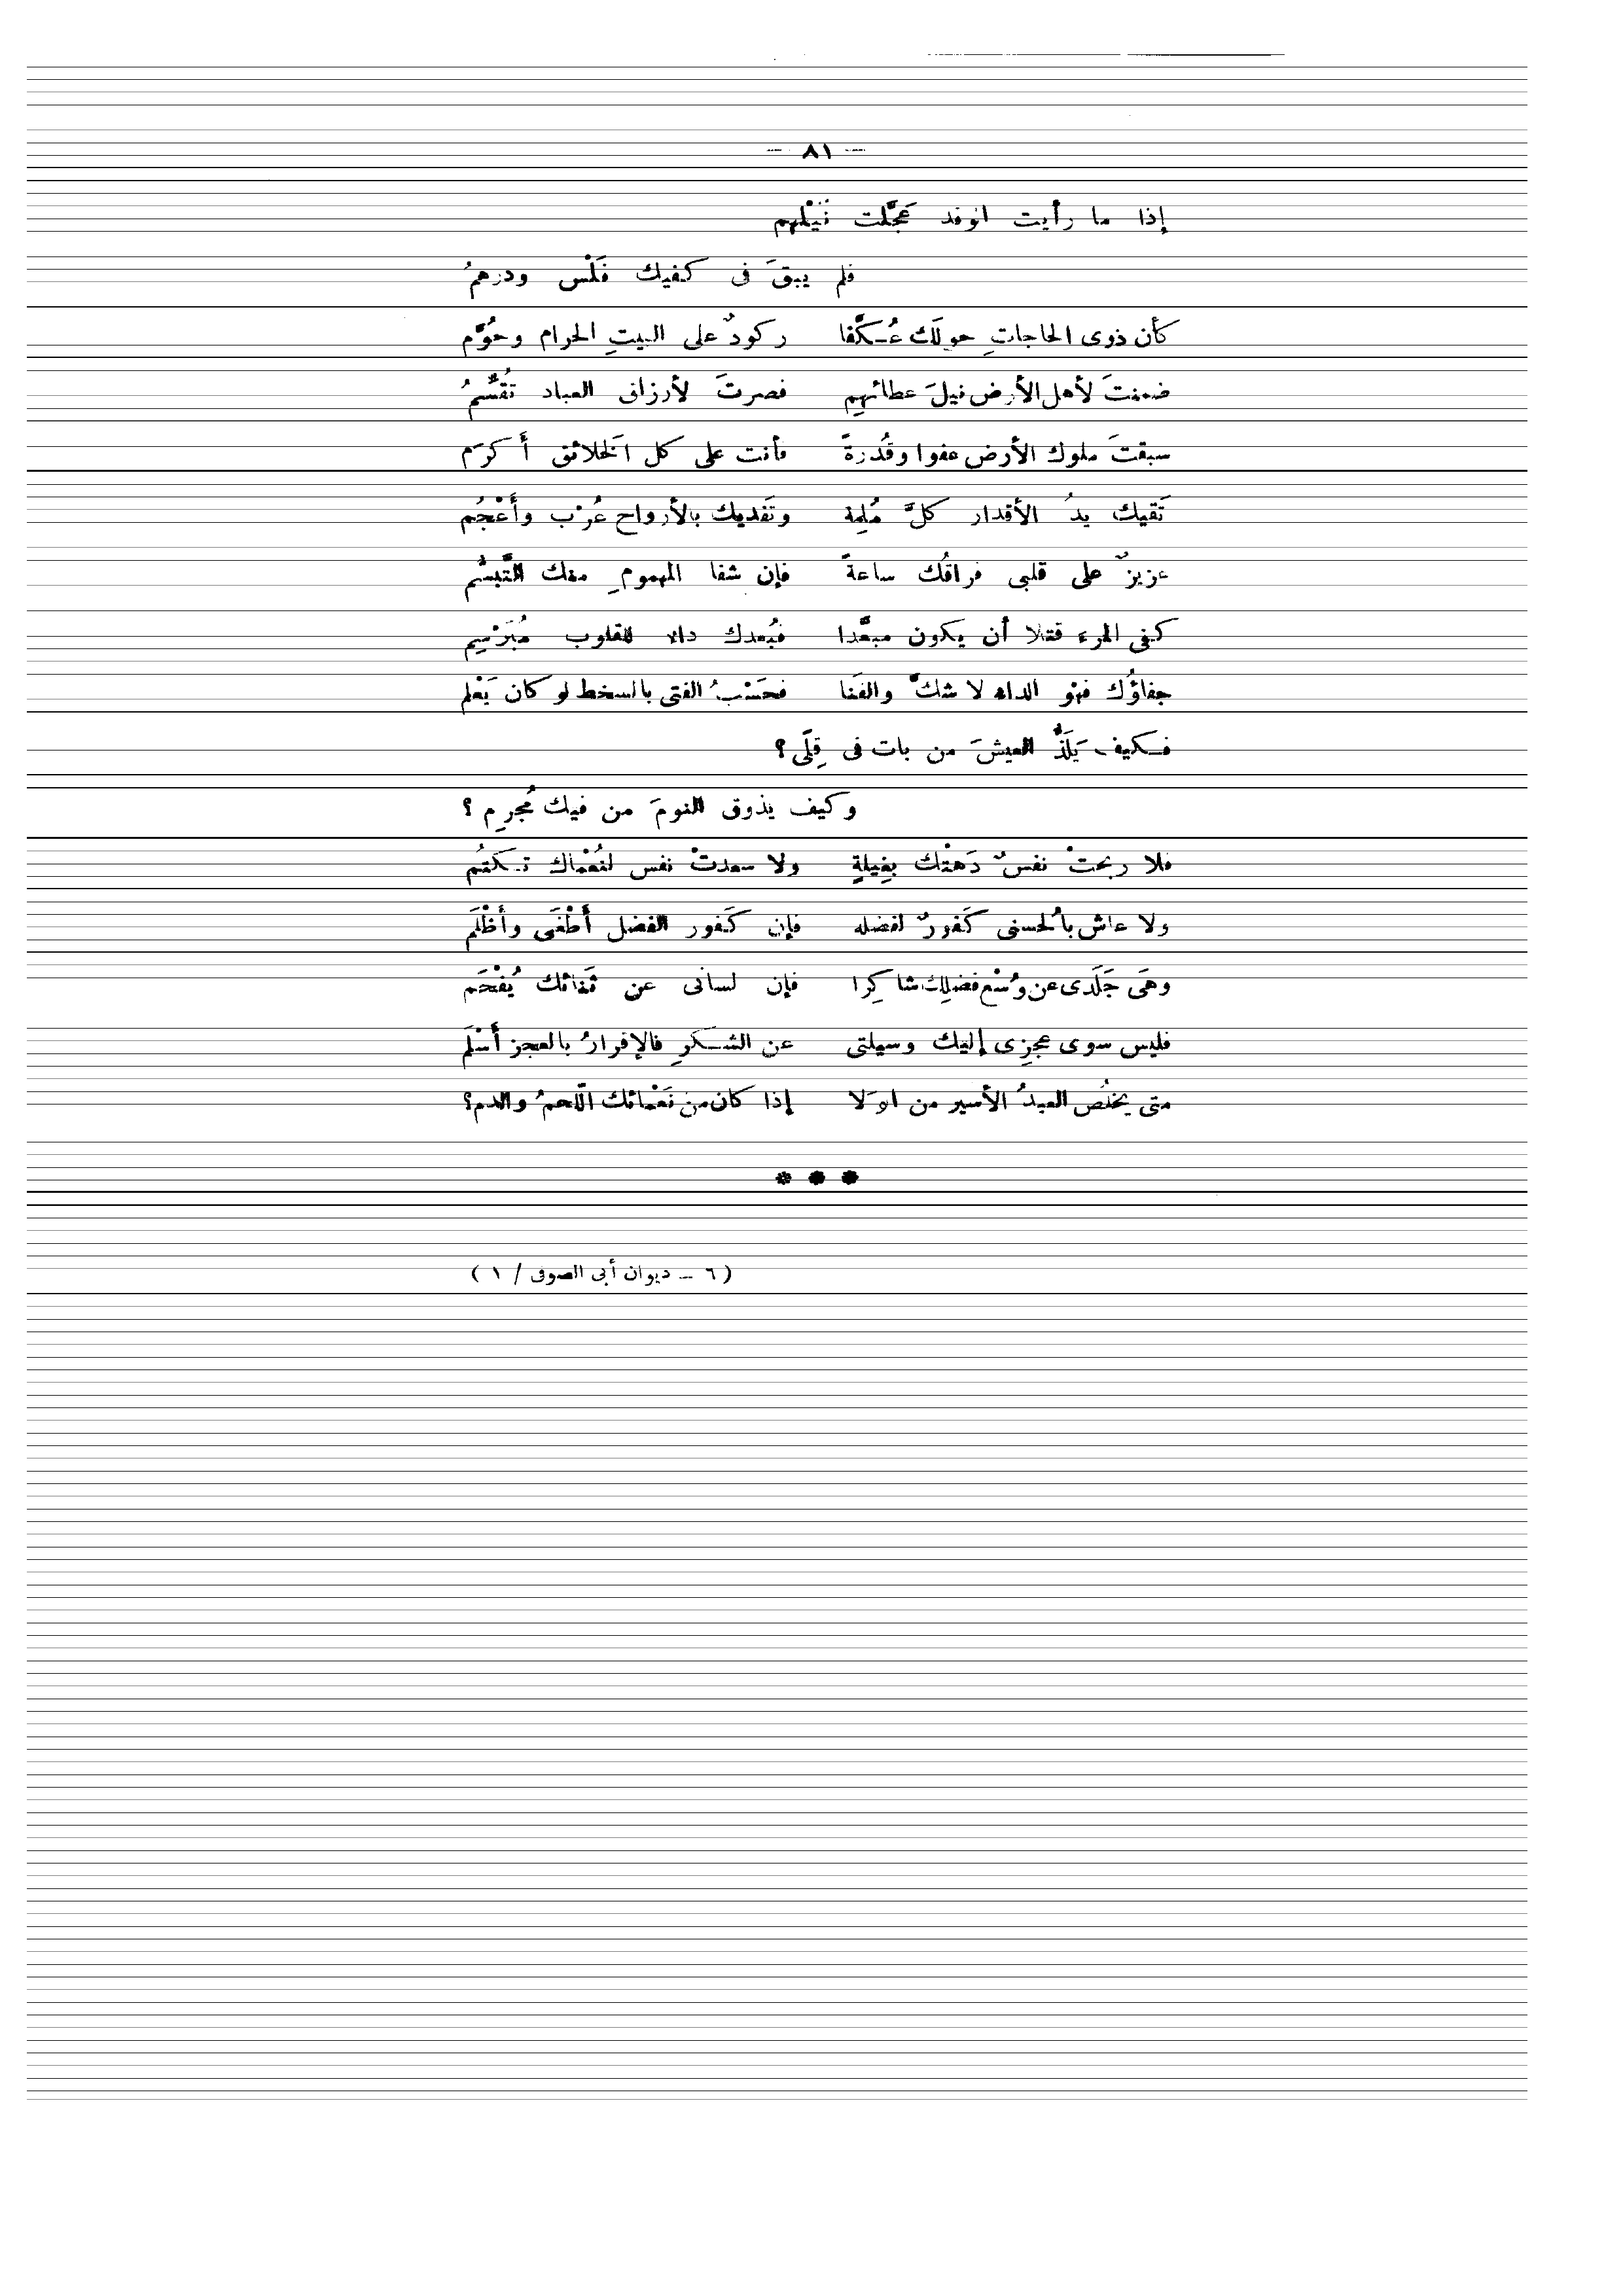 — ٨١ —
إذا ما رأيت الوفد عَجَّلت نَيْلهم
فلم يبقَ فى كفيك فَلْس ودرهمُ
كأن ذوى الحاجاتِ حولَك عُكَّفا ركودٌ على البيتِ الحرام وحُوَّم
ضمنتَ لأهل الأرض نيلَ عطائهِم فصرتَ لأرزاق العباد تُقَسِّمُ
سبقتَ ملوك الأرض عفوا وقُدرةً فأنت على كل الَخلائق أَكرَم
تَقيك يدُ الأقدار كلَّ مُلِمة وتَفديك بالأرواح عُرْب وأَعْجُم
عزيزٌ على قلبى فراقُك ساعةً فإن شفا المهمومِ منك التَّبسُّم
كفى المرء قتلا أن يكون مبعَّدا فبُعدك داء للقلوب مُبَرْسِم
جفاؤُك فهْو الداء لا شكَّ والفَنا فحَسْبُ الفتى بالسخط لو كان يَعْلم
فكيف يَلَذُّ العيشَ من بات فى قِلًى؟
وكيف يذوق النومَ من فيك مُجرِم؟
فلا ربحتْ نفسٌ دَهتْك بغِيلةٍ ولا سعدتْ نفس لنُعْماك تكتمُ
ولا عاش بالُحسنى كَفورٌ لفضله فإن كَفور الفضل أَطْغَى وأَظْلَم
وهَى جَلَدى عن وُسْع فضلِك شاكِرا فإن لسانى عن ثَنائك يُفْحَم
فليس سوى عجزِى إليك وسيلتى عن الشكرِ فالإقرارُ بالعجز أَسْلَم
متى يخلُص العبدُ الأسير من الوَلا إذا كان من نَعْمائك اللّحمُ والدم؟
* * *
( ٦ — ديوان أبى الصوفى / ١ )